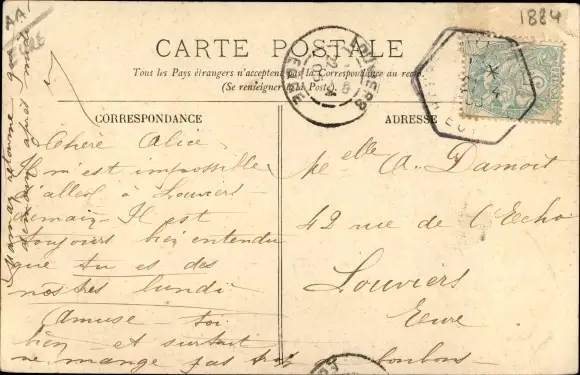 AA
1884
CARTE POSTALE
Tous les Pays étrangers n'acceptent pas la Correspondance au recto
(Se renseigner à la Poste)
CORRESPONDANCE
ADRESSE
Chère Alice
Il m'est impossible
d'aller à Louviers
demain. Il est
toujours bien entendu
que tu es des
nôtres lundi
Amuse-toi
bien et surtout
ne mange pas trop de bonbons
Maman retourne que
demain après midi
Melle A. Damoit
42 rue de l'Echo
Louviers
Eure
LOUVIERS
EURE